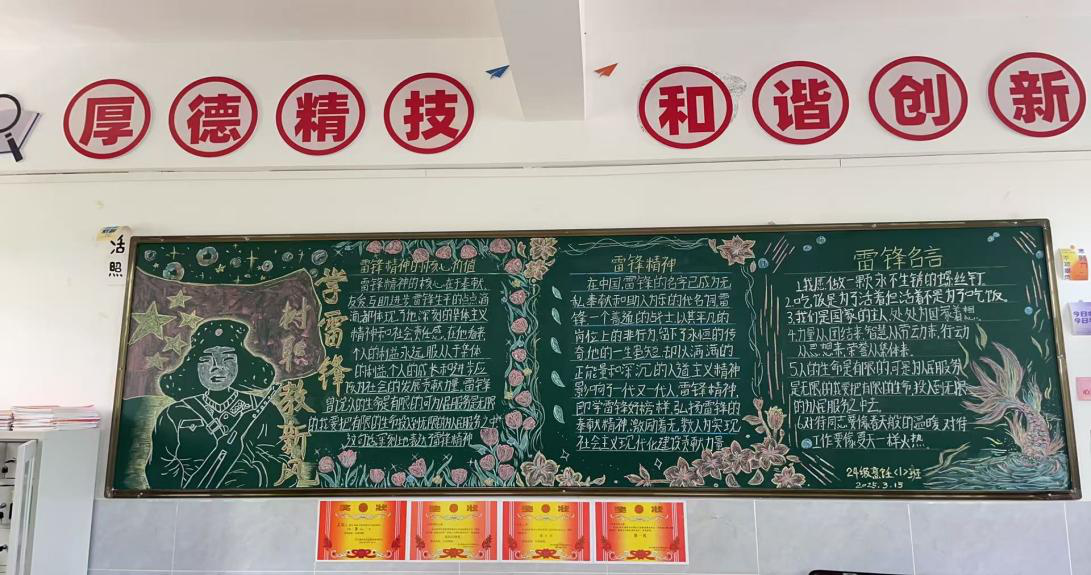 厚德精技
和谐创新
活
照
学雷锋
树职教新风
雷锋精神的核心价值
雷锋精神的核心在于奉献
友爱与助进步雷锋生平的点滴
精神和社会责任感,在他看来,
个人的利益永远服从于集体
的利益,个人的成长
及和社会的发展贡献力量,雷锋
曾说:人的生命是有限的可为人民服务是无限
的我要把有限的生命投入到无限的为人民服务之中
这句话深刻地表达了雷锋精神
雷锋精神
在中国,雷锋的名字已成为无
私奉献和助人为乐的代名词,雷
锋一个普通的战士,以其平凡的
岗位上的非行为,留下了永恒的传
奇,他的一生虽短却以满满的
正能量和深沉的人道主义精神
影响了一代又一代人,雷锋精神,
即学雷锋好榜样,弘扬雷锋的
奉献精神,激励着无数人为实现
社会主义现代化建设贡献力量
雷锋名言
1.我愿做一颗永不生锈的螺丝钉.
2.吃饭是为了活着但活着不是为了吃饭.
3.我们是国家的主人,处处为国家着想.
4.力量从团结来,智慧从劳动来,行动
从思想来,荣誉从集体来.
5.人的生命是有限的可是为人民服务
是无限的我要把有限的生命,投入到无限
的为人民服务之中去.
6.对待同志要像春天般的温暖,对待
工作要像夏天一样火热
24级烹饪<1>班
2025.3.15
奖状
奖状
奖状
奖状